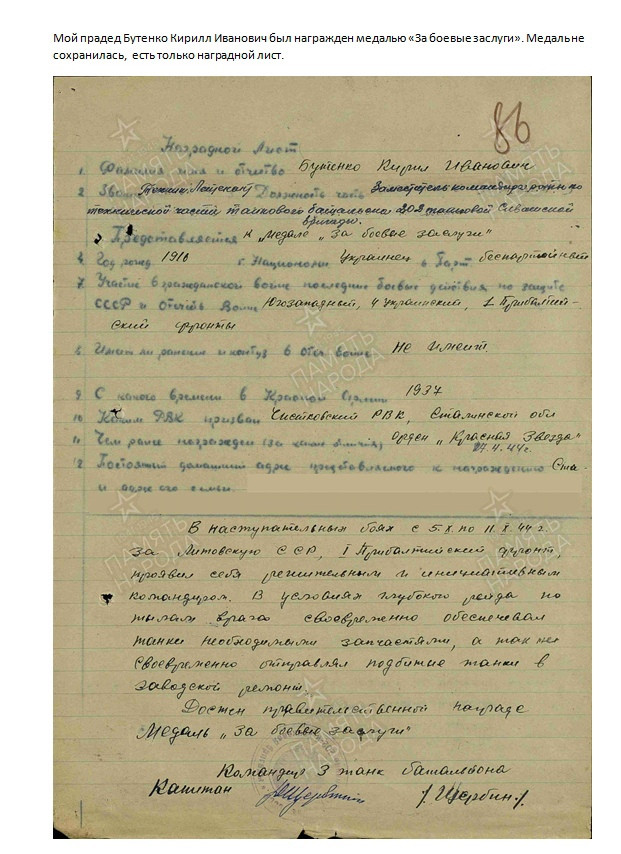 Мой прадед Бутенко Кирилл Иванович был награжден медалью «За боевые заслуги». Медаль не
сохранилась, есть только наградной лист.
86
Наградной Лист
1. Фамилия имя и отчество Бутенко Кирил Иванович
2 Звание Техник-Лейтенант Должность часть Заместитель командира роты по
технической части танкового батальона 202 танковой Сивашской
бригады.
3 Представляется к Медале „За боевые заслуги"
4 Год рожд. 1916 г. Националь Украинец 6 Парт. беспартойный
7 Участие в гражданской войне последние боевые действия по защите
СССР и Отечеств Войне Югозападный, 4 Украинский, 1 Прибалтий-
ский фронты
8. Имеет ли ранения и контуз в Отеч войне. Не имеет
9 С какого времени в Красной Армии 1937
10 Каким РВК призван РВК, Сталинской обл
11 Чем ранее награжден (за какие отличия) орден „Красная Звезда"
27.4.44г.
12 Постоянный домашний адрес представляемого к награждению Ста-
и адрес его семьи
В наступательных боях с 5.X по 11.X 44 г.
за Литовскую ССР, I Прибалтийский фронт,
проявил себя решительным и инициативным
командиром. В условиях глубокого рейда по
тылам врага своевременно обеспечивал
танки необходимыми запчастями, а так же
своевременно отправлял подбитые танки в
заводской ремонт.
Достоен правительственной награде
Медаль „За боевые заслуги"
Командир 3 танк батальона
Капитан /Щербин./
ПАМЯТЬ НАРОДА
ПАМЯТЬ НАРОДА
ПАМЯТЬ НАРОДА
ПАМЯТЬ НАРОДА
ПАМЯТЬ НАРОДА
ПАМЯТЬ НАРОДА